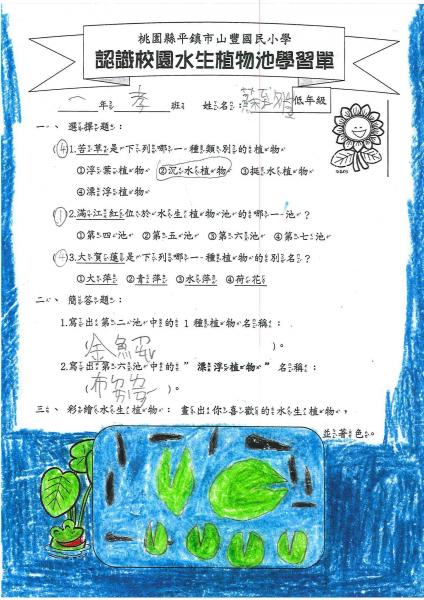 桃園縣平鎮市山豐國民小學
認識校園水生植物池學習單
一年 孝 班 姓名： 蘇 雅 低年級
一、選擇題：
(4)1.苦草是下列哪一種類別的植物
①浮葉植物 ②沉水植物 ③挺水植物
④漂浮植物
(1)2.滿江紅位於水生植物池的哪一池？
①第四池 ②第五池 ③第六池 ④第七池
(4)3.大賀蓮是下列哪一種植物的別名？
①大萍 ②青萍 ③水萍 ④荷花
二、簡答題：
1.寫出第二池中的1種植物名稱：
(金魚ㄗㄠˇ)。
2.寫出第六池中的"漂浮植物"名稱：
(布ㄉㄞˋ)。
三、彩繪水生植物：畫出你喜歡的水生植物，
並著色。